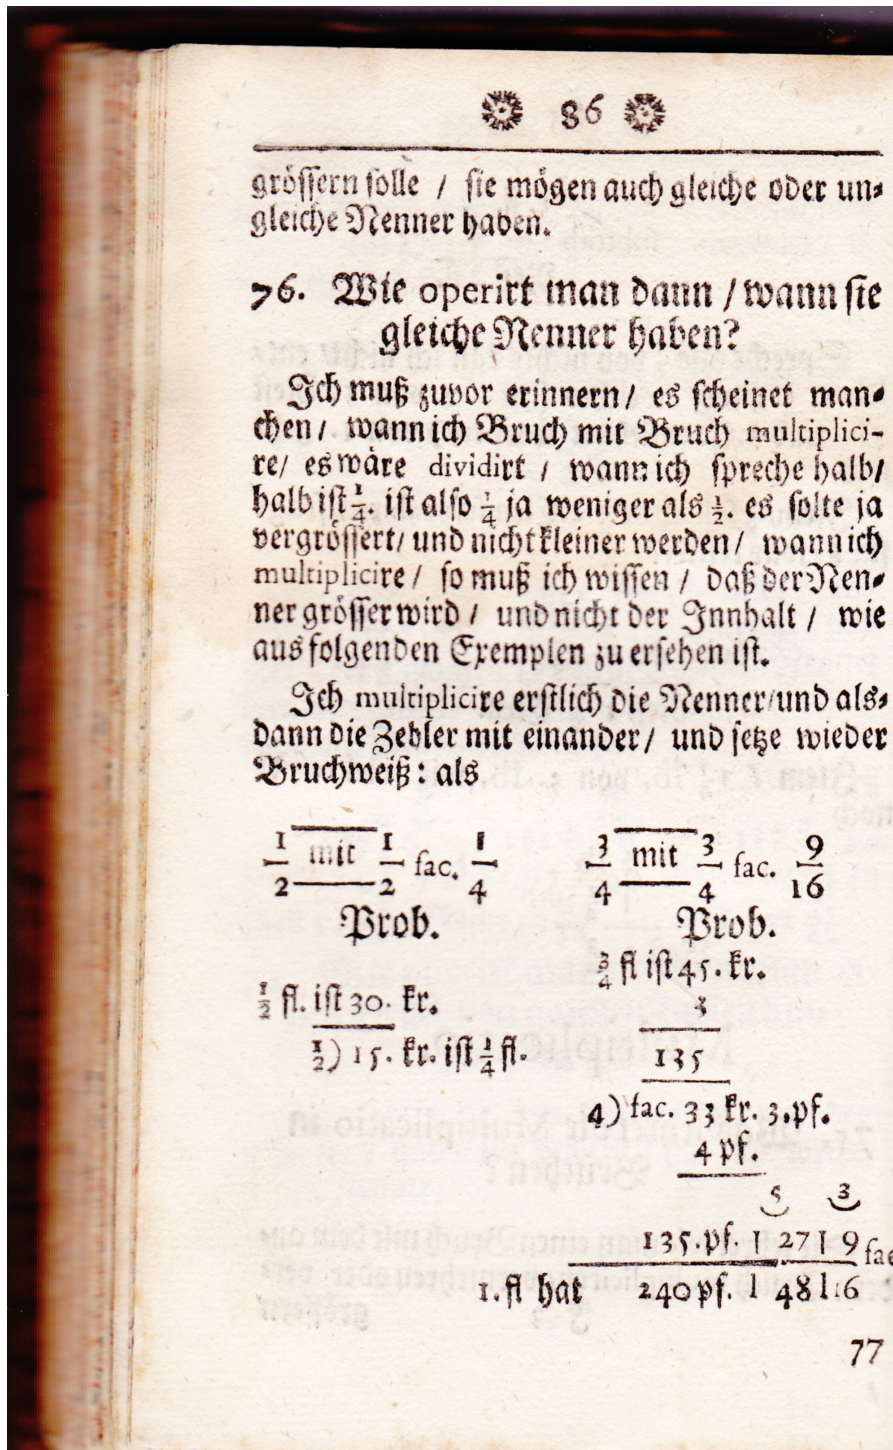 86
gröſſern ſolle / ſie mögen auch gleiche oder un⸗
gleiche Nenner haben.
76. Wie operirt man dann / wann ſie
gleiche Nenner haben?
Ich muß zuvor erinnern / es ſcheinet man⸗
chen / wann ich Bruch mit Bruch multiplici-
re / es wäre dividirt / wann ich ſpreche halb /
halb iſt 1/4. iſt alſo 1/4 ja weniger als 1/2. es ſolte ja
vergröſſert / und nicht kleiner werden / wann ich
multiplicire / ſo muß ich wiſſen / daß der Nen⸗
ner gröſſer wird / und nicht der Innhalt / wie
aus folgenden Exemplen zu erſehen iſt.
Ich multiplicire erſtlich die Nenner / und als⸗
dann die Zehler mit einander / und ſetze wieder
Bruchweiß: als
1/2 mit 1/2 fac. 1/4 3/4 mit 3/4 fac. 9/16
Prob. Prob.
3/4 fl iſt 45. kr.
1/2 fl. iſt 30. kr. 3
1/2) 15. kr. iſt 1/4 fl. 135
4) fac. 33 kr. 3. pf.
4 pf.
5 3
135. pf. | 27 | 9 fac
1. fl hat 240 pf. | 48 | 16
77